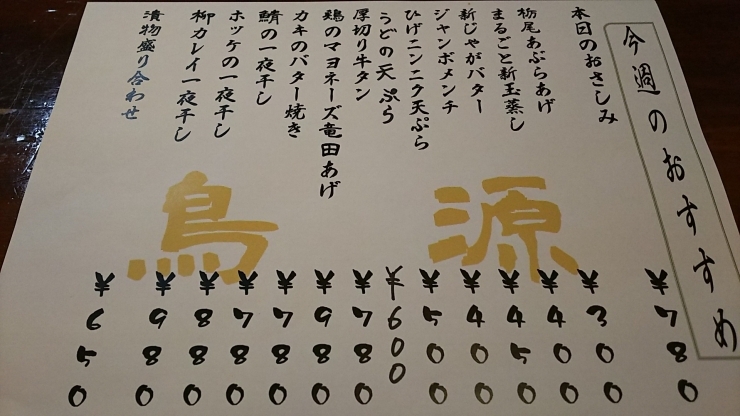 今週のおすすめ
本日のおさしみ ¥780
栃尾あぶらあげ ¥300
まるごと新玉蒸し ¥400
新じゃがバター ¥450
ジャンボメンチ ¥400
ひげニンニク天ぷら ¥500
うどの天ぷら ¥600
厚切り牛タン ¥780
鶏のマヨネーズ竜田あげ ¥980
カキのバター焼き ¥780
鯖の一夜干し ¥780
ホッケの一夜干し ¥880
柳カレイ一夜干し ¥980
漬物盛り合わせ ¥650
鳥源